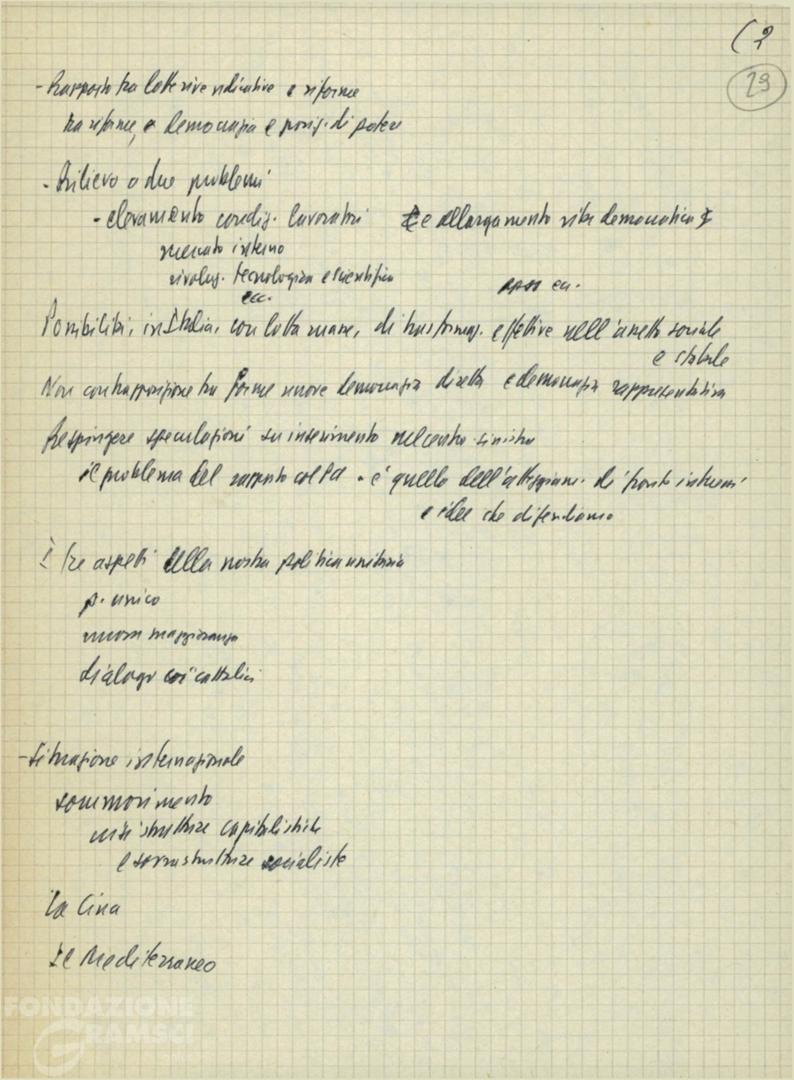 ( 2
29
- Rapporto tra lotte rivendicative e riforme
tra riforme, e democrazia e posiz. di potere
- Rilievo a due problemi
- elevamento condiz. lavoratori e allargamento vita democratica
mercato interno
rivoluz. tecnologica e scientifica
ecc. ecc.
Possibilità, in Italia, con lotta masse, di trasformaz. effettive nell'assetto sociale
e statale
Non contrapposizione tra forme nuove democrazia diretta e democrazia rappresentativa
Respingere speculazioni su inserimento nel centro-sinistra
il problema del rapporto col Pci è quello dell'atteggiam. di fronte
e idee che difendiamo
I tre aspetti della nostra politica unitaria
p. unico
nuova maggioranza
dialogo coi cattolici
- Situazione internazionale
sommovimento
strutture capitalistiche
e sovrastrutture socialiste
La Cina
Il Mediterraneo
FONDAZIONE
GRAMSCI